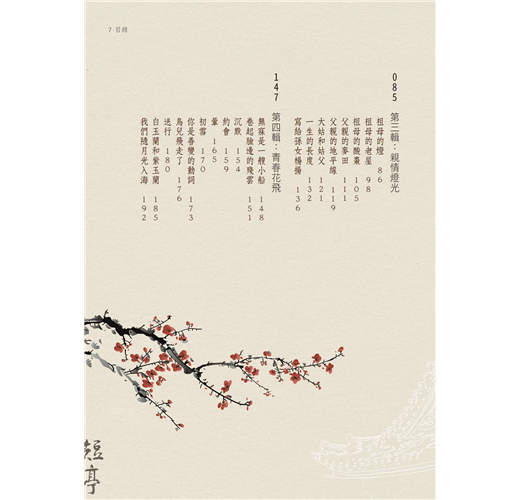 7 目錄
085 第三輯：親情燈光
祖母的燈 86
祖母的老屋 98
祖母的酸棗 105
父親的麥田 111
父親的地平線 119
大姑和姑父 121
一生的長度 132
寫給孫女楊揚 136
147 第四輯：青春花飛
無寐是一艘小船 148
卷起臉邊的殘雲 151
沉默 154
約會 159
暈 165
初雪 170
你是善變的動詞 173
鳥兒飛走了 176
送行 180
白玉蘭和紫玉蘭 185
我們隨月光入海 192
短亭